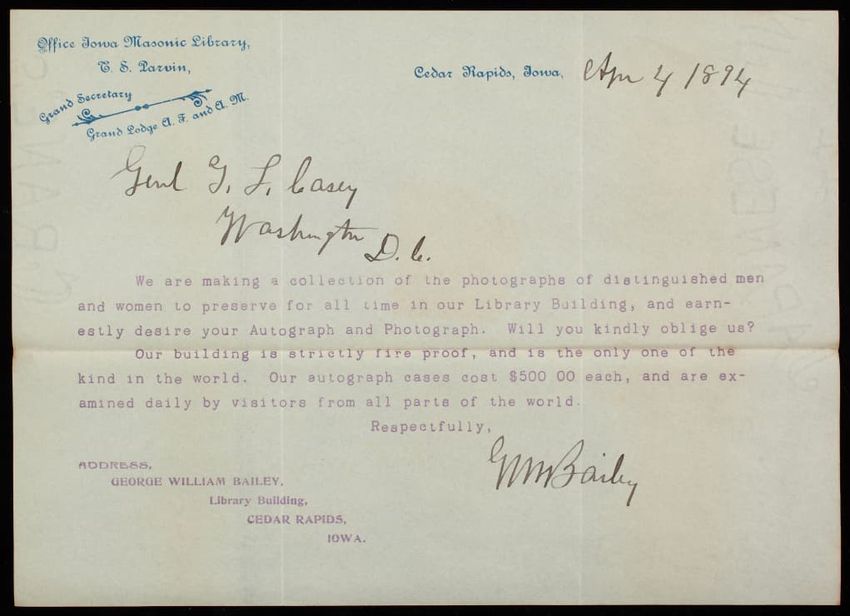 Office Iowa Masonic Library,
T. S. Parvin,
Grand Secretary
Grand Lodge A. F. and A. M.
Cedar Rapids, Iowa, Apr 4 1894
Genl T. L. Casey
Washington
D. C.
We are making a collection of the photographs of distinguished men
and women to preserve for all time in our Library Building, and earn-
estly desire your Autograph and Photograph. Will you kindly oblige us?
Our building is strictly fire proof, and is the only one of the
kind in the world. Our autograph cases cost $500 00 each, and are ex-
amined daily by visitors from all parts of the world.
Respectfully,
GWmBailey
ADDRESS,
GEORGE WILLIAM BAILEY,
Library Building,
CEDAR RAPIDS,
IOWA.